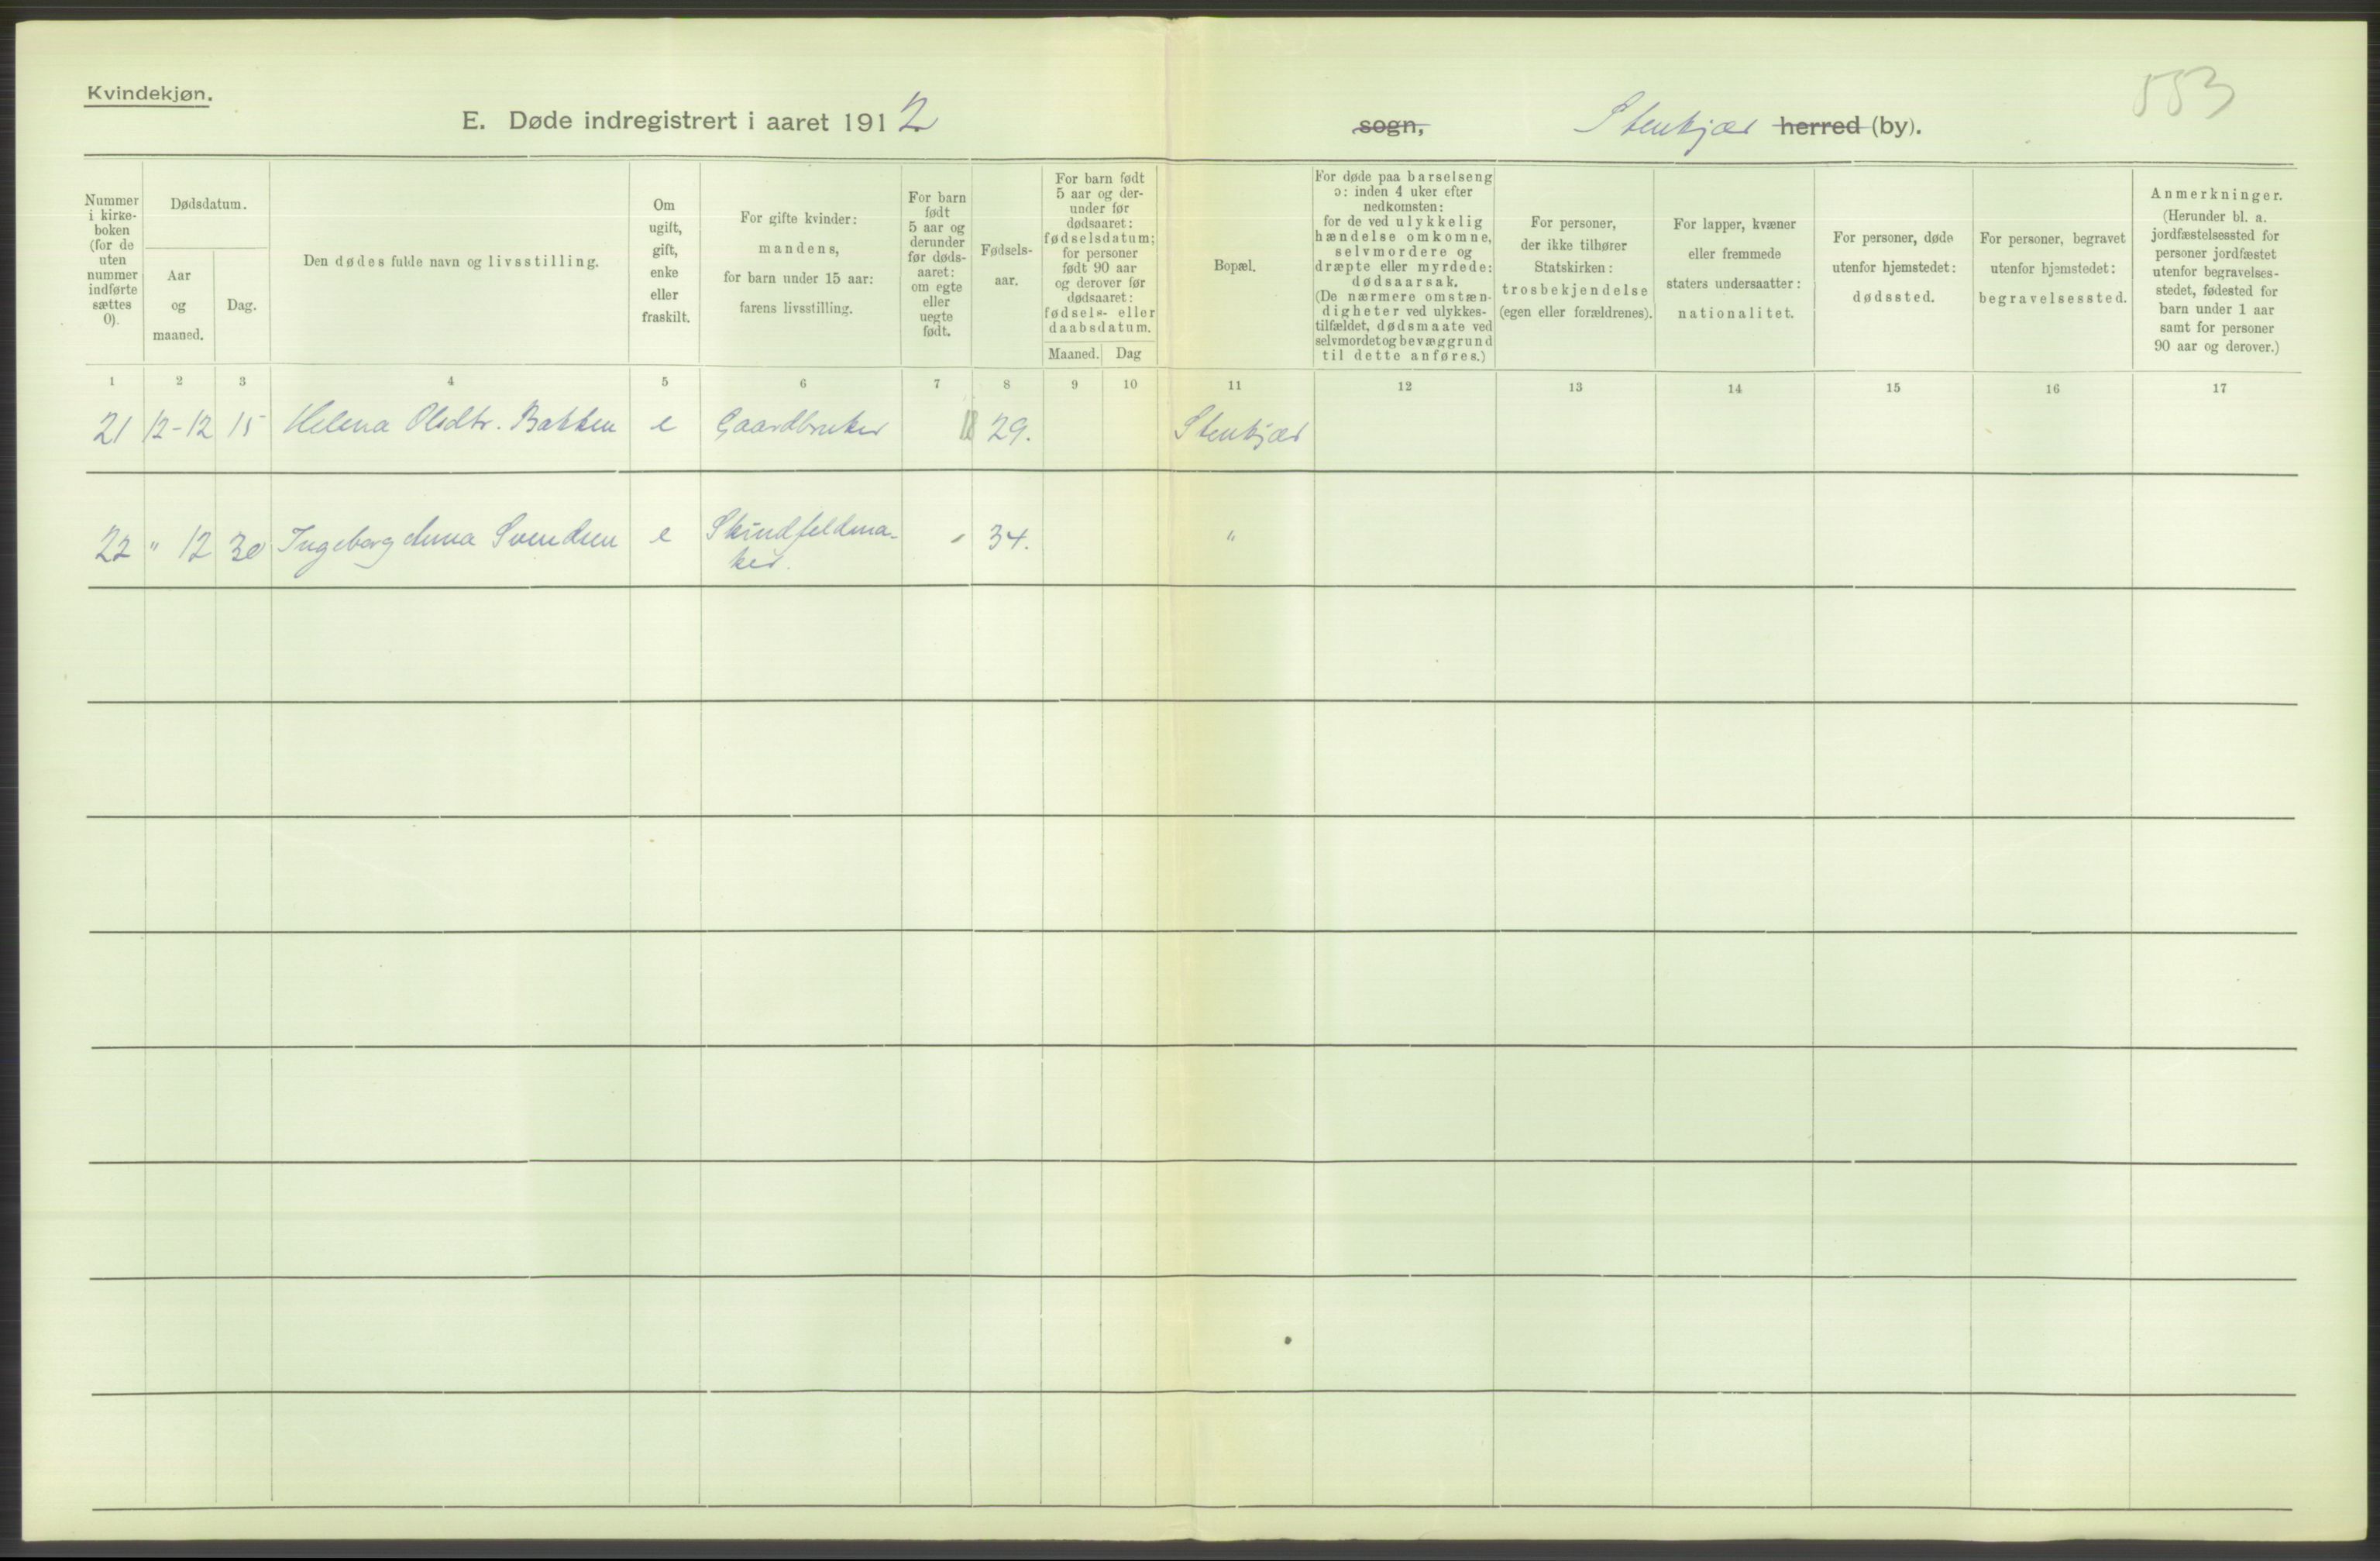 Kvindekjøn.
553
E. Døde indregistrert i aaret 1912
sogn, Stenkjær herred (by).
Nummer
i kirke-
boken
(for de
uten
nummer
indførte
sættes
0).
Dødsdatum.
Aar
og
maaned.
Dag.
Den dødes fulde navn og livsstilling.
Om
ugift,
gift,
enke
eller
fraskilt.
For gifte kvinder:
mandens,
for barn under 15 aar:
farens livsstilling.
For barn
født
5 aar og
derunder
før døds-
aaret:
om egte
eller
uegte
født.
Fødsels-
aar.
For barn født
5 aar og der-
under før
dødsaaret:
fødselsdatum;
for personer
født 90 aar
og derover før
dødsaaret:
fødsels- eller
daabsdatum.
Maaned. Dag
Bopæl.
For døde paa barselseng
ɔ: inden 4 uker efter
nedkomsten;
for de ved ulykkelig
hændelse omkomne,
selvmordere og
dræpte eller myrdede:
dødsaarsak.
(De nærmere omstæn-
digheter ved ulykkes-
tilfældet, dødsmaate ved
selvmordet og bevæggrund
til dette anføres.)
For personer,
der ikke tilhører
Statskirken:
trosbekjendelse
(egen eller forældrenes).
For lapper, kvæner
eller fremmede
staters undersaatter:
nationalitet.
For personer, døde
utenfor hjemstedet:
dødssted.
For personer, begravet
utenfor hjemstedet:
begravelsessted.
Anmerkninger.
(Herunder bl. a.
jordfæstelsessted for
personer jordfæstet
utenfor begravelses-
stedet, fødested for
barn under 1 aar
samt for personer
90 aar og derover.)
1 2 3 4 5 6 7 8 9 10 11 12 13 14 15 16 17
21 12-12 15 Helena Olsdtr. Bakken e Gaardbruker 18 29. Stenkjær
22 " 12 30 Ingeborg Anna Svendsen e Skindfeldma- " 34. "
ker.